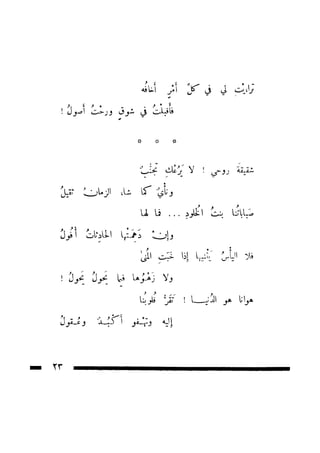 تراءيْتِ لي في كلّ أمرٍ أخافُه
فأقبلْتُ في شوقٍ ورحْتُ أصولُ !
* * *
شقيقةَ روحي ! لا يَرُعْكِ تجنُّبٌ
ونأْيٌ كما شاء الزمانُ ثقيلُ
صَباباتُنا بنتُ الخلودِ ... فما لها
وإنْ دَهِمَتْها الحادِثاتُ أُفولُ
فلا اليأسُ يَثْنِيها إذا خَبَتِ المُنى
ولا زَهْوُها فيما يَحولُ يَحولُ !
هوانا هو الدُنيا ! تَقَرُّ قُلوبُنا
إليه وتهفو أكْبُدٌ وعُقولُ
٢٣